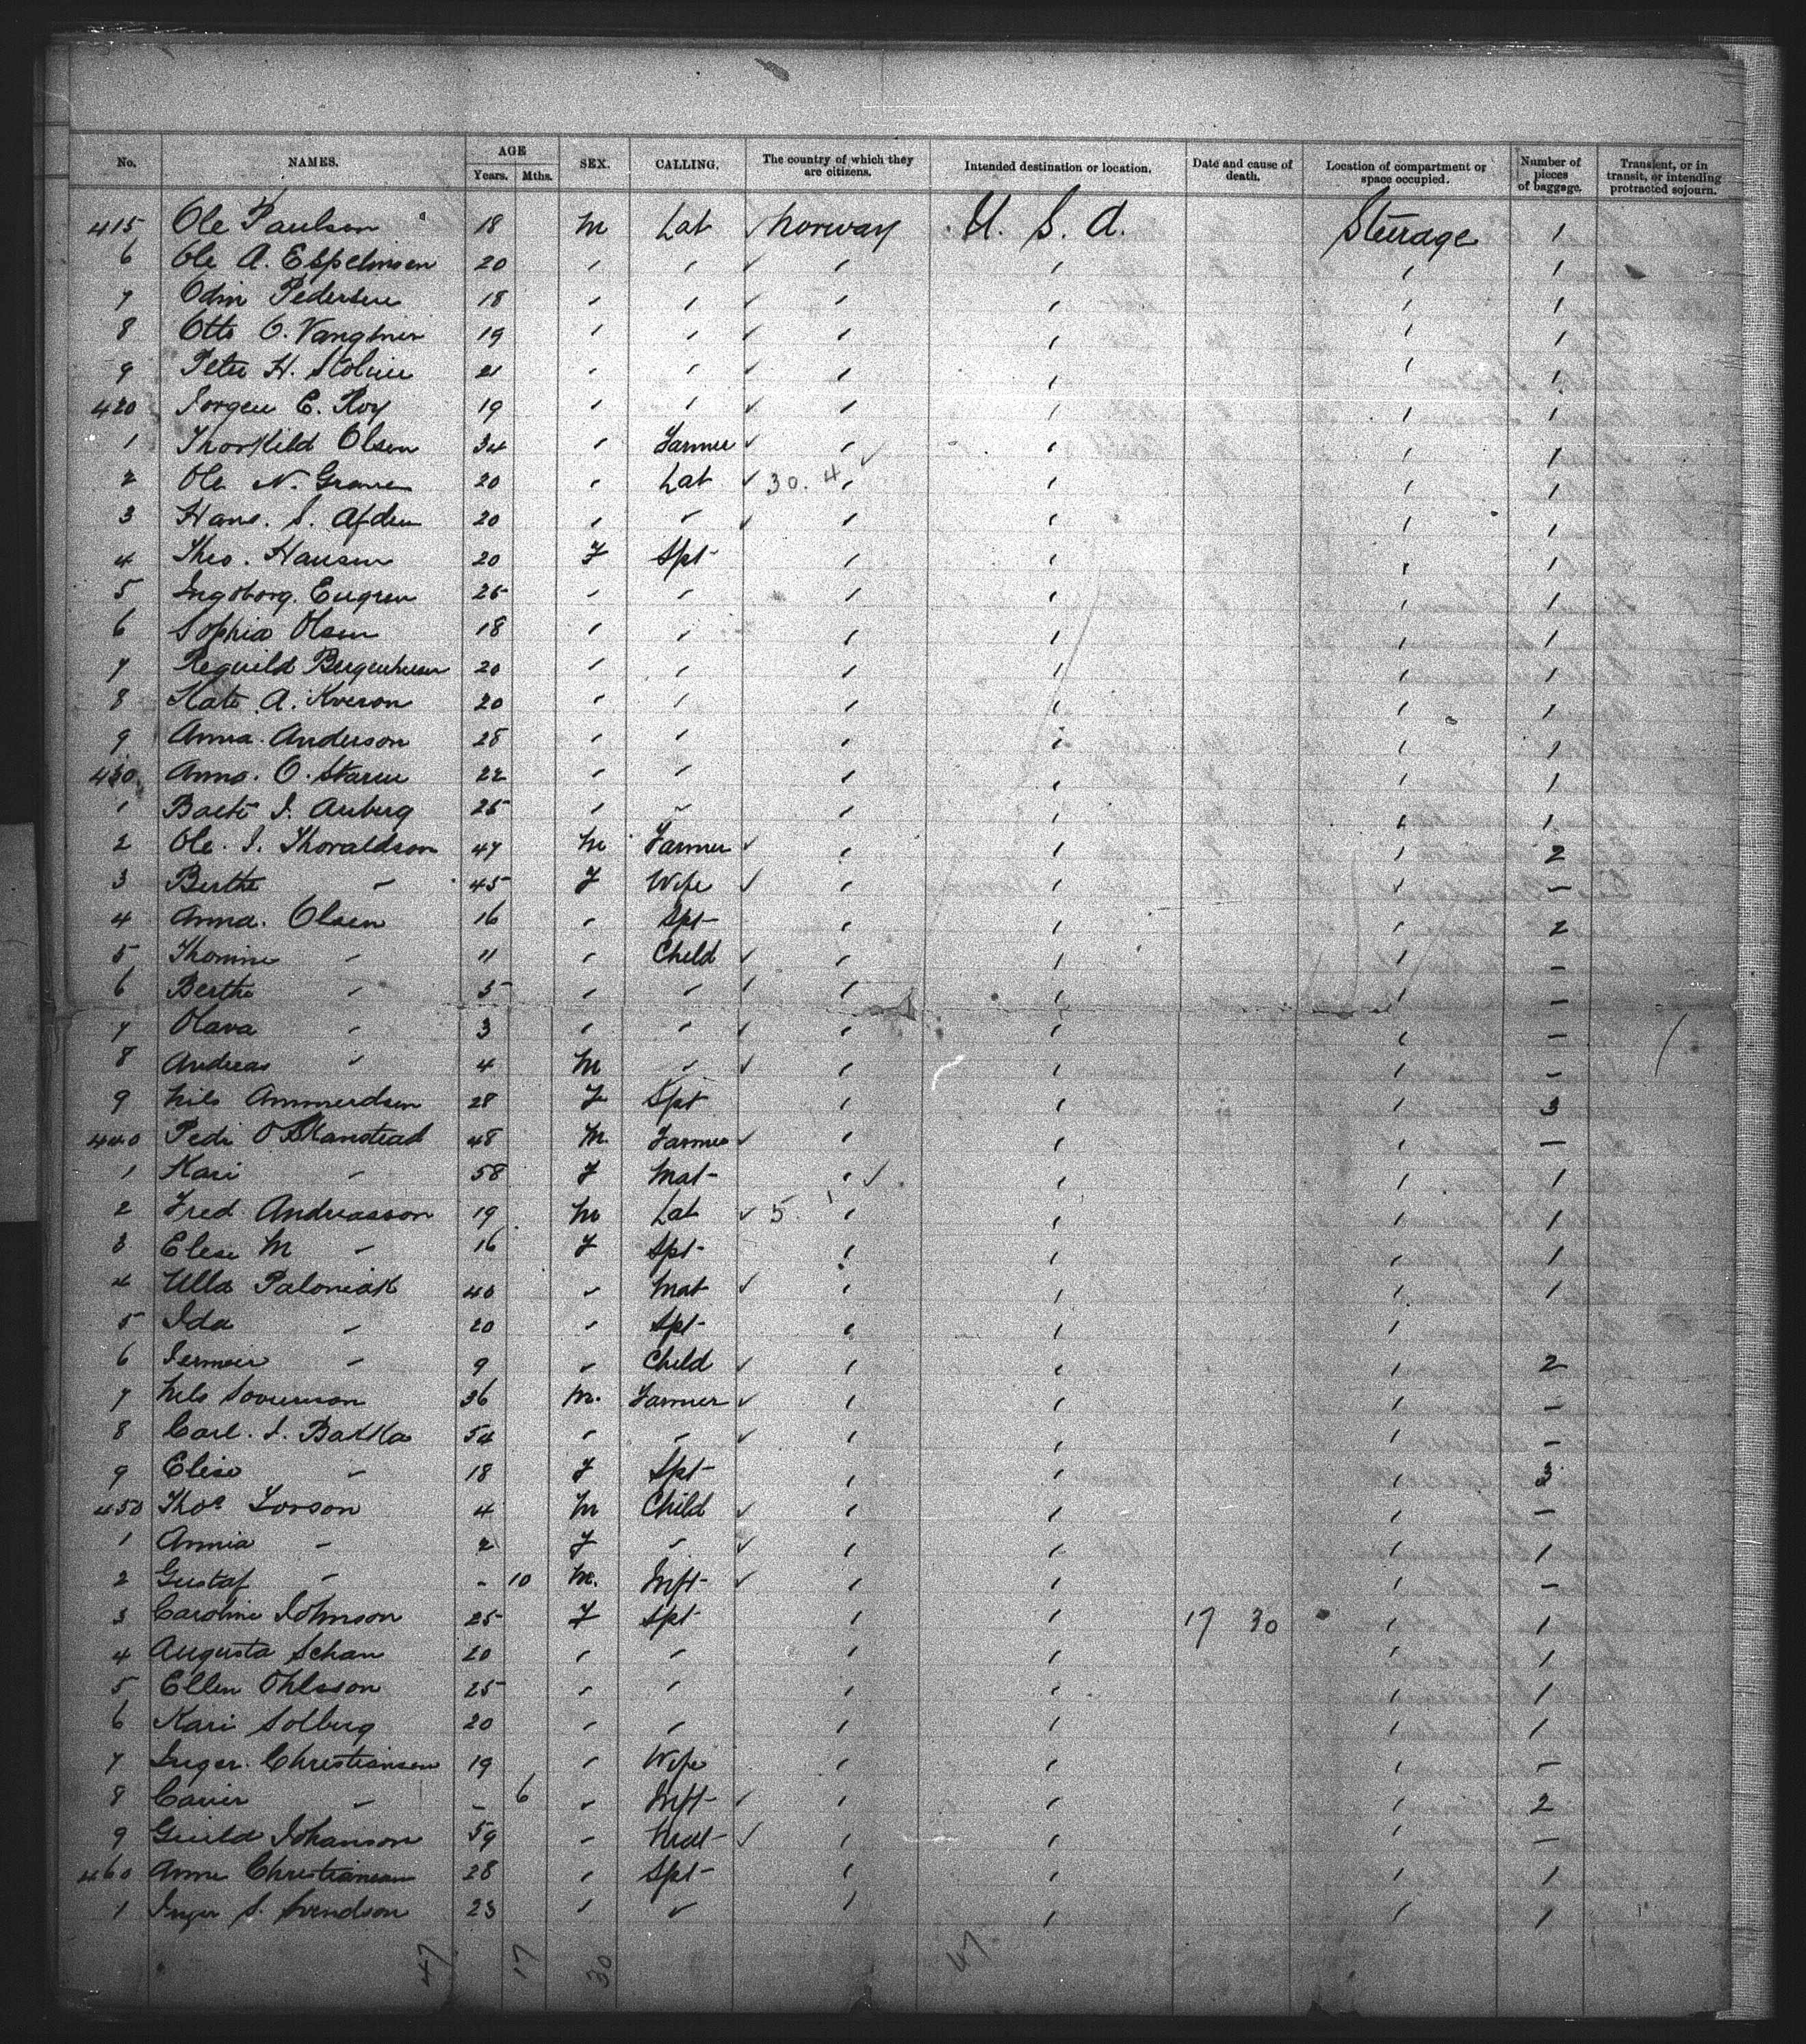 No. NAMES. AGE Years. Mths. SEX. CALLING. The country of which they are citizens. Intended destination or location. Date and cause of death. Location of compartment or space occupied. Number of pieces of baggage. Transient, or in transit, or intending protracted sojourn.
415 Ole Paulson 18 M Lab ✓ Norway U. S. A. Steerage 1
6 Ole A. Espelinsen 20 " " ✓ " " " 1
7 Odin Pedersen 18 " " ✓ " " " 1
8 Otto O. 19 " " ✓ " " " 1
9 Peter H. 21 " " ✓ " " " 1
420 Jorgen E. Roy 19 " " ✓ " " " 1
1 Thorkild Olsen 34 " Farmer ✓ " " " 1
2 Ole N. Grane 20 " Lab ✓ 30. 4 " " " 1
3 Hans. S. 20 " " ✓ " " " 1
4 Theo. Hansen 20 F Spt " " " 1
5 Ingoborg. Eugren 25 " " " " " 1
6 Sophia Olsen 18 " " " " " 1
7 20 " " " " " 1
8 Kate A. Kverson 20 " " " " " 1
9 Anna Anderson 28 " " " " " 1
430 Anna. O. Staren 22 " " " " " 1
1 J. Auberg 25 " " " " " 1
2 Ole. J. Thoraldson 47 M Farmer ✓ " " " 2
3 Berthe " 45 F Wife ✓ " " " –
4 Anna. Olsen 16 " Spt " " " 2
5 Thomine " 11 " Child ✓ " " " –
6 Berthe " 5 " " ✓ " " " –
7 Olava " 3 " " ✓ " " " –
8 Andreas " 4 M " ✓ " " " –
9 Nils Ammerdsen 28 F Spt " " " 3
440 Pedi O 48 M. Farmer ✓ " " " –
1 Kari " 58 F Mat " ✓ " " 1
2 Fred Andreasson 19 M Lab ✓ 5. " " " 1
3 Elese M " 16 F Spt " " " 1
4 Ulla Paloniak 40 " Mat ✓ " " " 1
5 Ida " 20 " Spt " " "
6 " 9 " Child ✓ " " " 2
7 Nels 36 M. Farmer ✓ " " " –
8 Carl. J. Bakka 54 " " ✓ " " " –
9 Elise " 18 F Spt " " " 3
450 Thos Lorson 4 M Child ✓ " " " –
1 Annia " 2 F " ✓ " " " 1
2 Gustaf " - 10 M. Inft ✓ " " " –
3 Caroline Johnson 25 F Spt " " 17 30 " 1
4 Augusta Schan 20 " " " " " 1
5 Ellen Ohlsson 25 " " " " " 1
6 Kari Solberg 20 " " " " " 1
7 Inger. Christiansen 19 " Wife " " " –
8 " - 6 " Inft ✓ " " " 2
9 Johanson 59 " Mat ✓ " " " –
460 Anne Christiansen 28 " Spt " " " 1
1 Inger S. Svendson 23 " " " " " 1
47 17 30 47